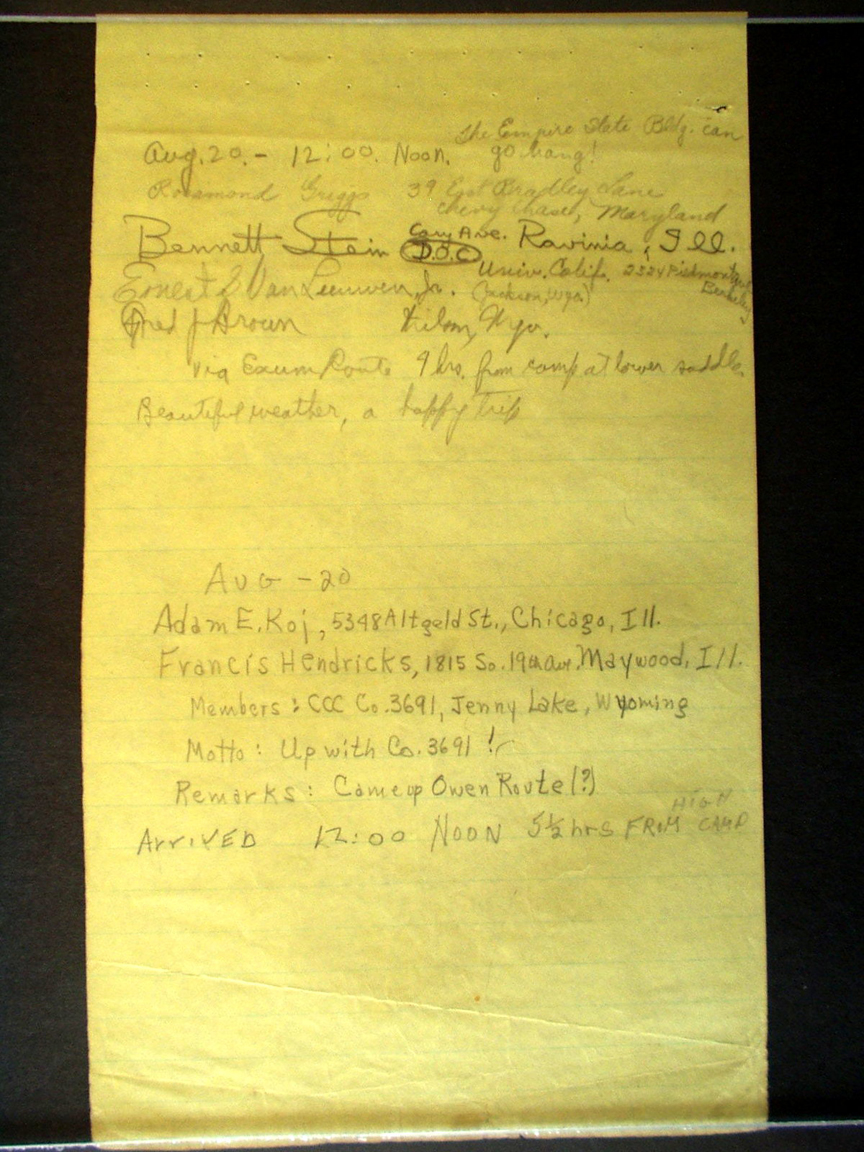 The Empire State Bldg. can
Aug. 20. - 12:00. Noon. go hang!
Rosamond Griggs 39 East Bradley Lane
Chevy Chase, Maryland
Bennett Stein Cary Ave. Ravinia, Ill.
D.O.C
Univ. Calif. 2324 Piedmont
Ernest S Van Leeuwen, Jr. (Jackson, Wyo.) Berkeley
Fred J Brown Wilson, Wyo.
Via Exum Route 9 hrs. from camp at lower saddle.
Beautiful weather, a happy trip
AUG - 20
Adam E. Koj, 5348 Altgeld St., Chicago, Ill.
Francis Hendricks, 1815 So. 19th Ave, Maywood, Ill.
Members: CCC Co. 3691, Jenny Lake, Wyoming
Motto: Up with Co. 3691!
Remarks: Came up Owen Route (?)
HIGH
ArriVED 12:00 NOON 5½ hrs FROM CAMP